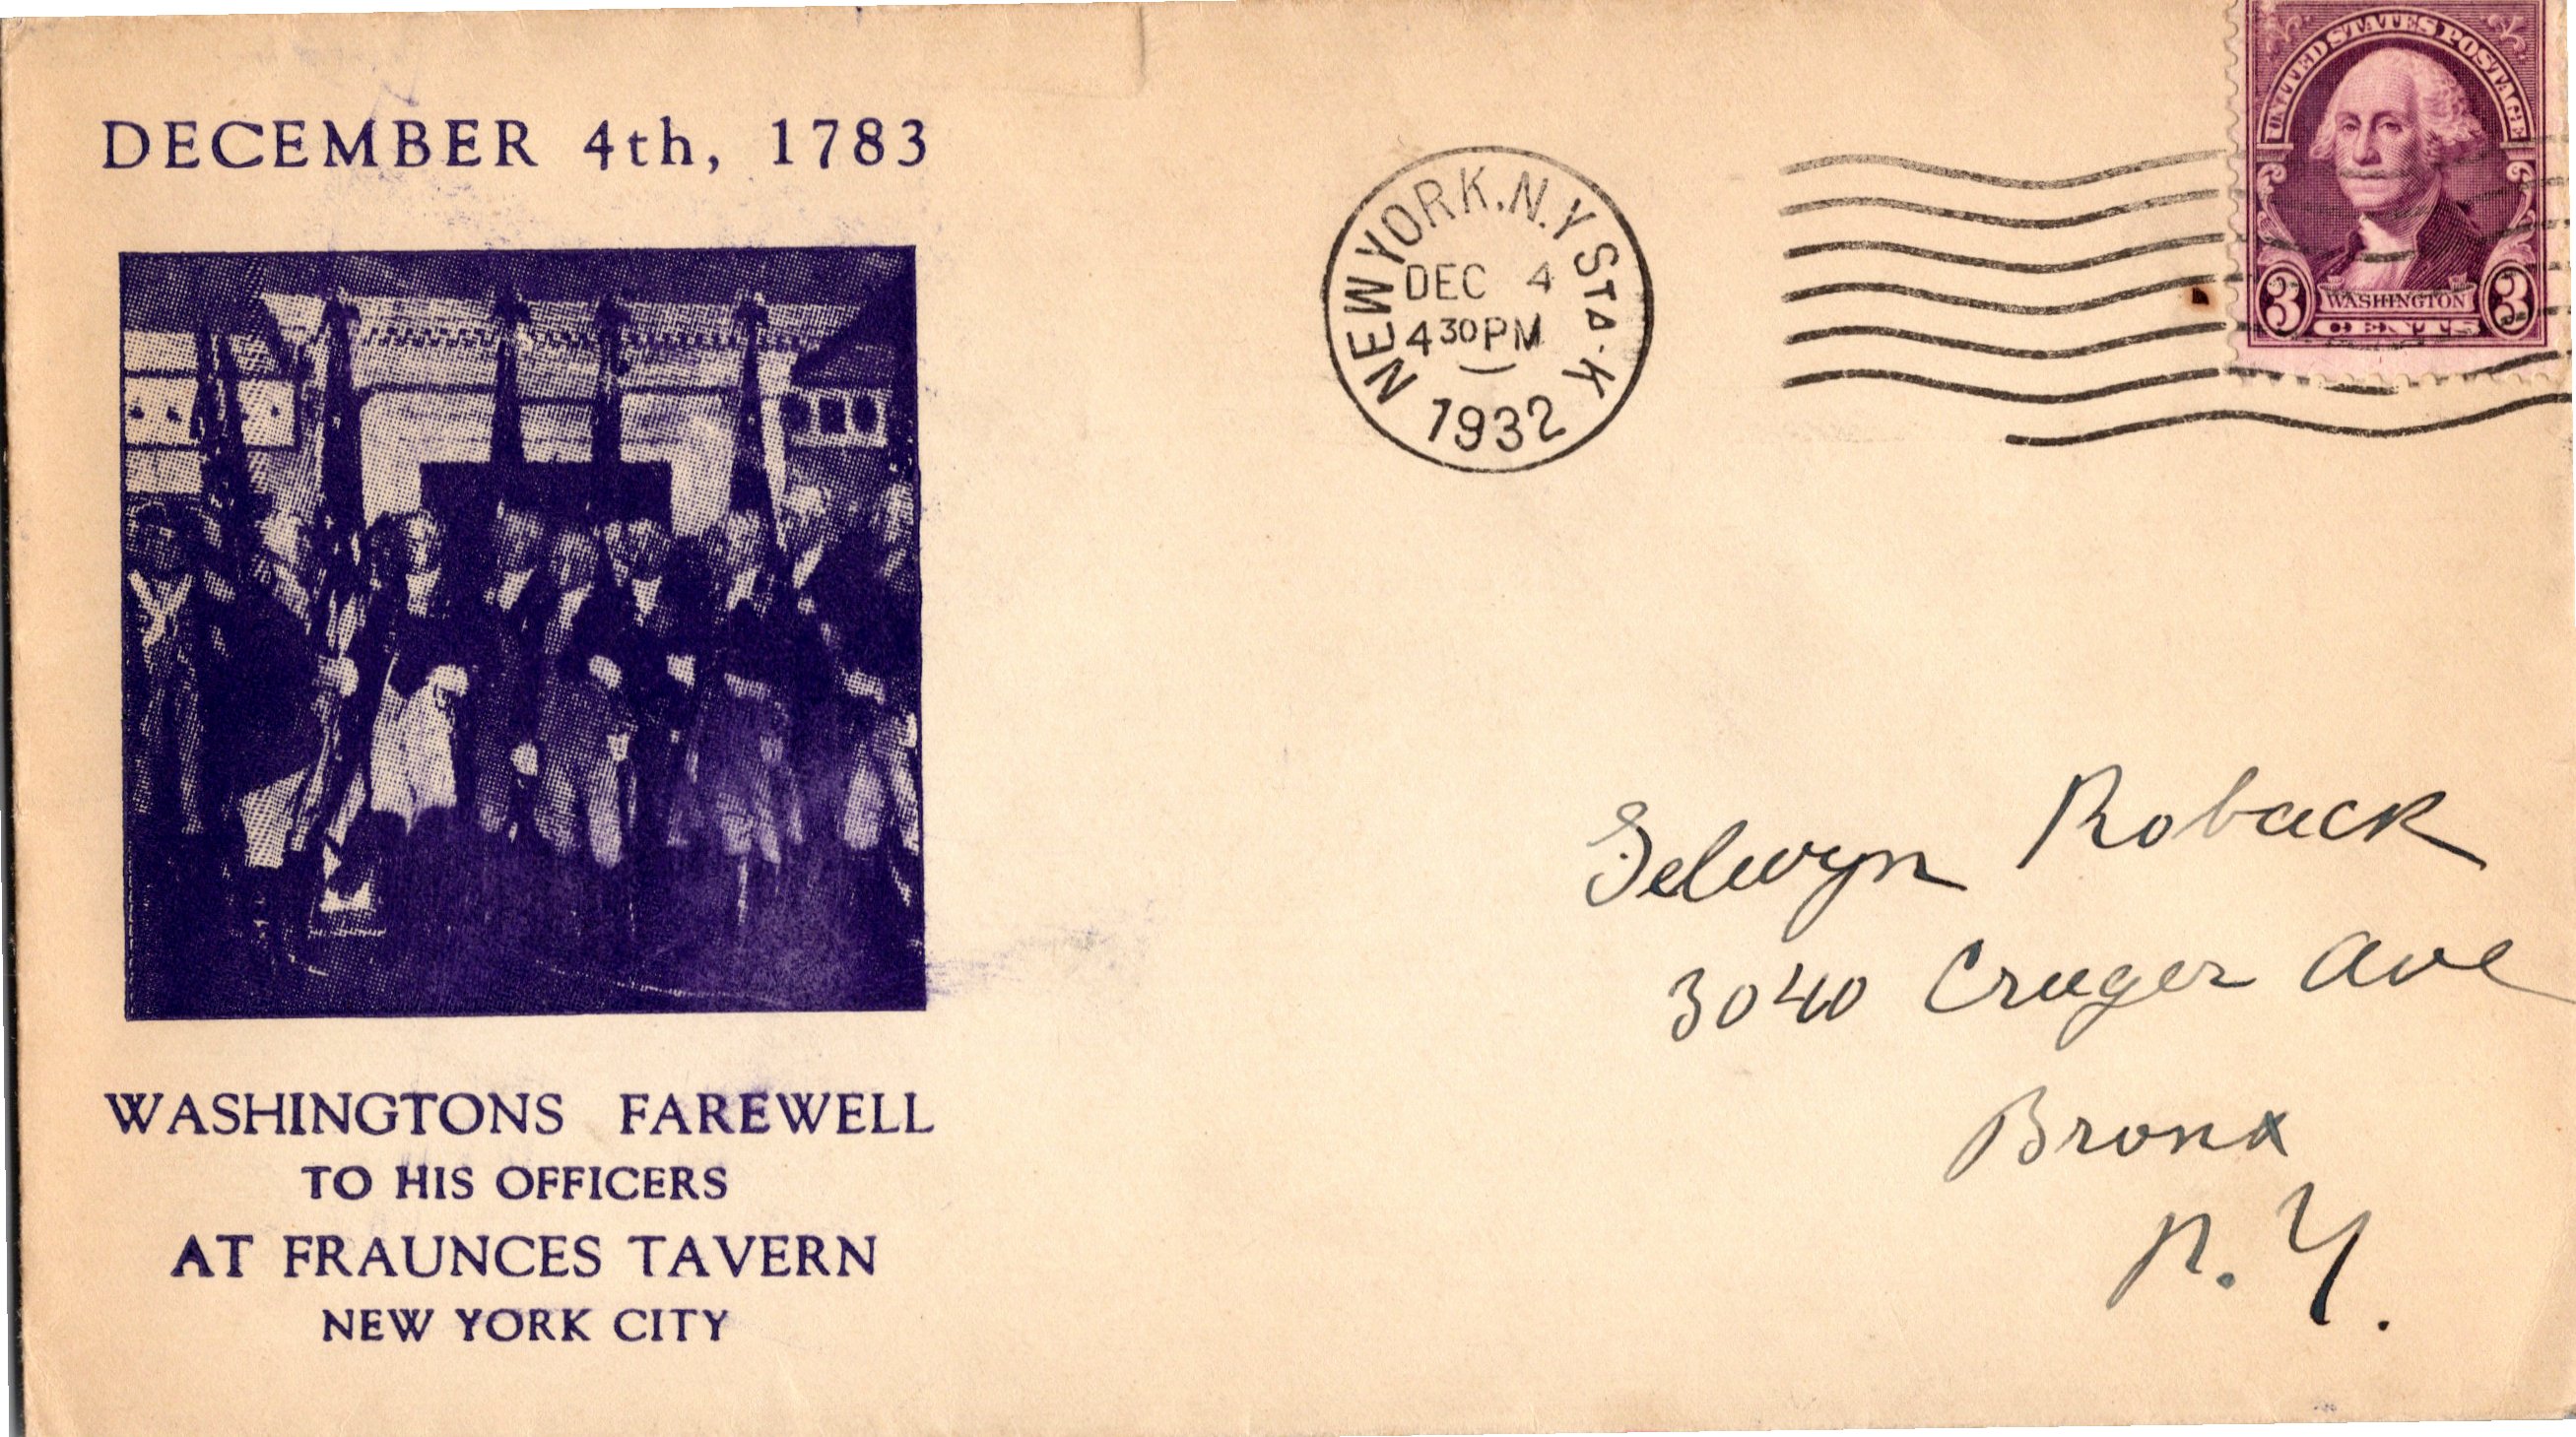 DECEMBER 4th, 1783
WASHINGTONS FAREWELL
TO HIS OFFICERS
AT FRAUNCES TAVERN
NEW YORK CITY
NEW YORK, N.Y. STA. K
DEC 4
4 30 PM
1932
UNITED STATES POSTAGE
WASHINGTON
3 3
CENTS
Selwyn Roback
3040 Cruger Ave
Bronx
N.Y.